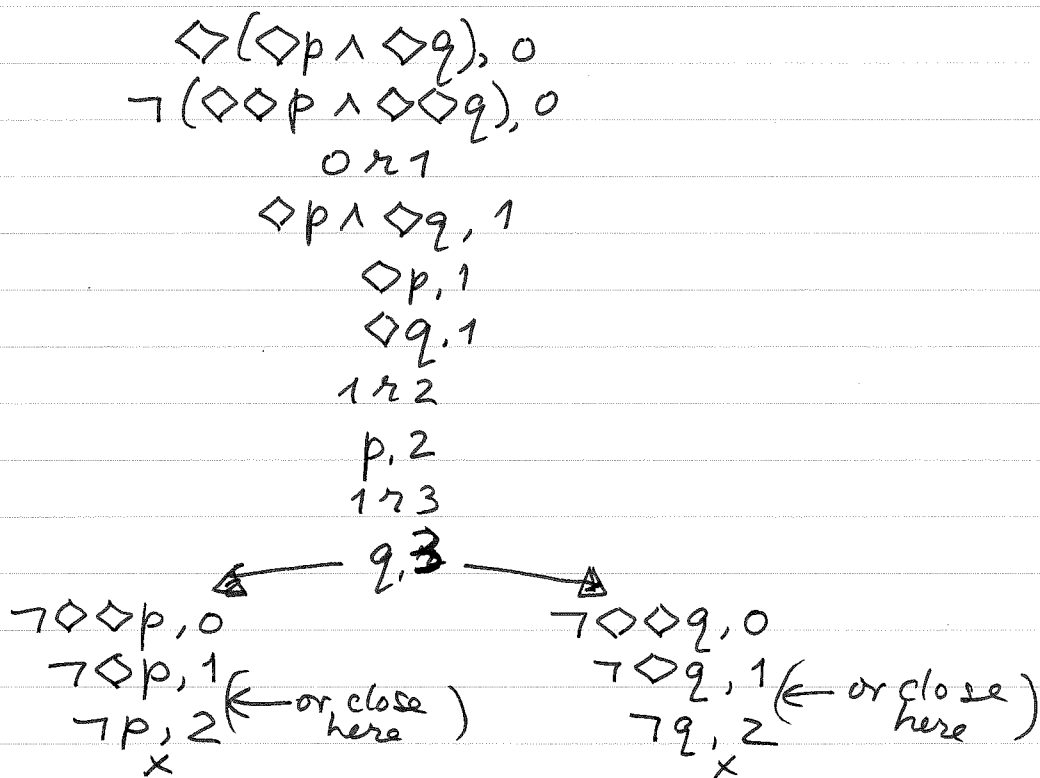 ◇(◇p ∧ ◇q), 0
¬(◇◇p ∧ ◇◇q), 0
0 r 1
◇p ∧ ◇q, 1
◇p, 1
◇q, 1
1 r 2
p, 2
1 r 3
q, 3
¬◇◇p, 0 ¬◇◇q, 0
¬◇p, 1 (← or close here) ¬◇q, 1 (← or close here)
¬p, 2 ¬q, 2
× ×